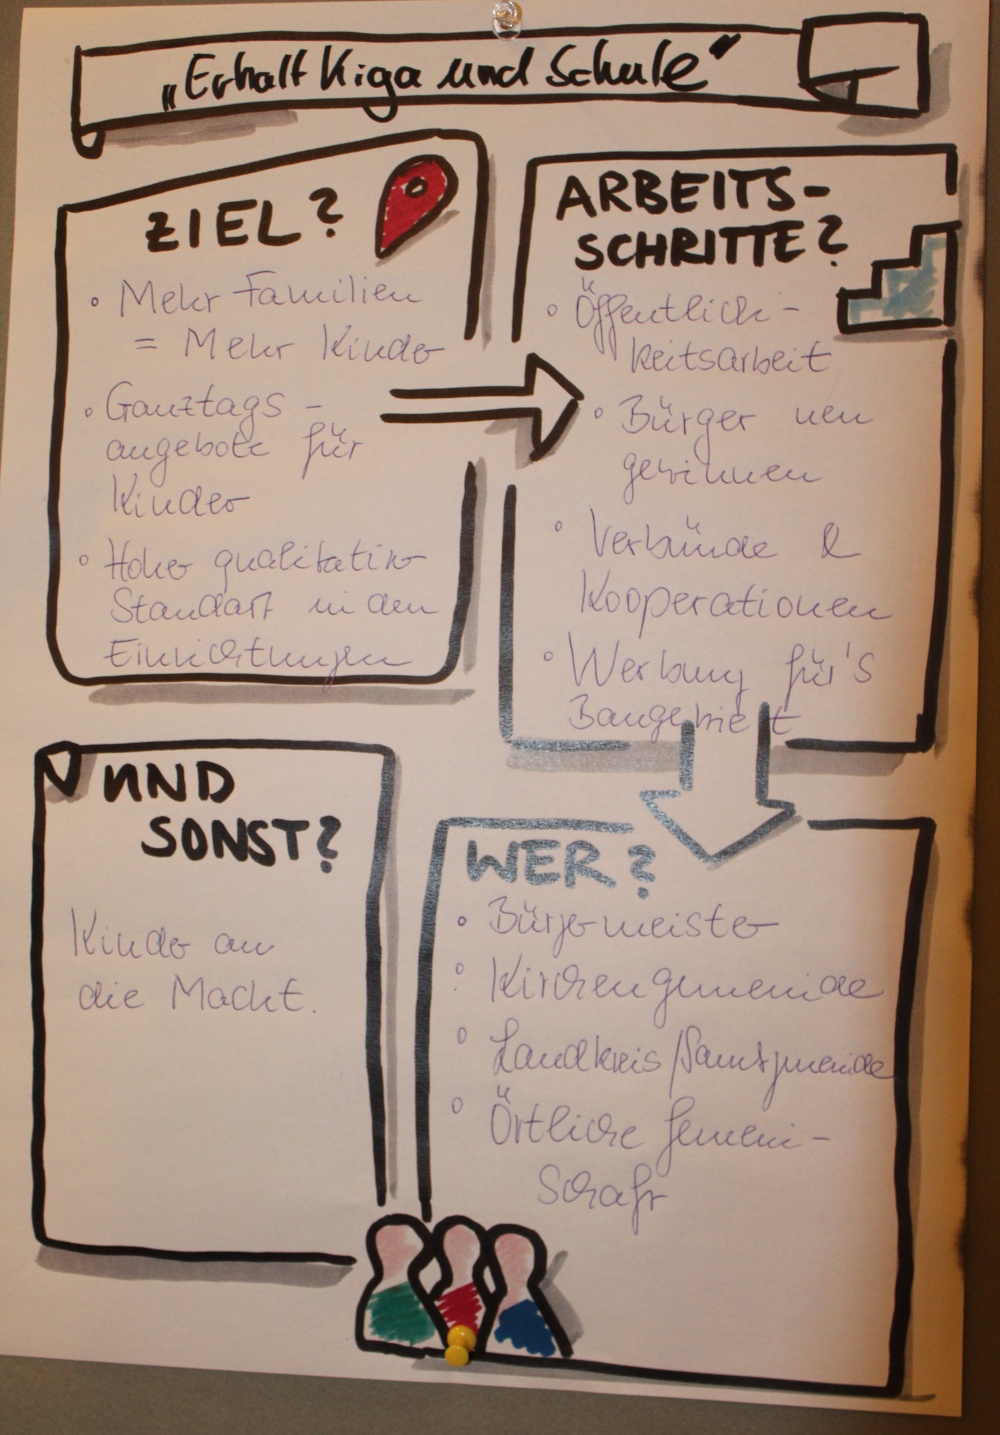 „Erhalt Kiga und Schule"
ZIEL?
• Mehr Familien
= Mehr Kinder
• Ganztags-
angebote für
Kinder
• Hoher qualitativ
Standart in den
Einrichtungen
ARBEITS-
SCHRITTE?
• Öffentlich-
keitsarbeit
• Bürger neu
gewinnen
• Verbünde &
Kooperationen
• Werbung für's
Baugebiet
UND
SONST?
Kinder an
die Macht.
WER?
• Bürgermeister
• Kirchengemeinde
• Landkreis/Samtgemeinde
• Örtliche Gemein-
schaft